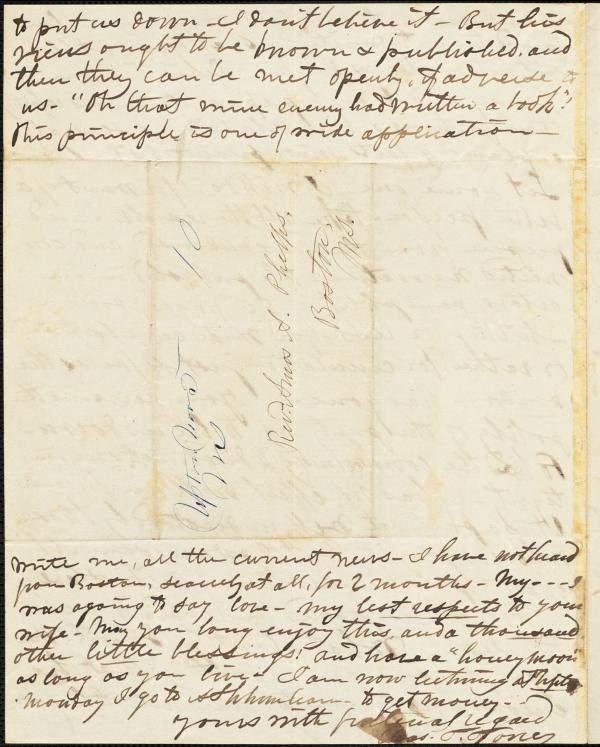 to put us down - I don't believe it - But his
views ought to be known & published, and
then they can be met openly, if adverse to
us - "Oh that mine enemy had written a book"!
This principle is one of wide application -
10
Rev. Amos A. Phelps,
Boston,
Ms.
Upton
Ms
Write me, all the current news - I have not heard
from Boston, scarcely at all, for 2 months - My - - - I
was agoing to say love - my best respects to your
wife - May you long enjoy this, and a thousand
other little blessings! and have a "honey moon"
as long as you live - I am now lecturing at Upton
Monday I go to - to get money -
yours with fraternal regard